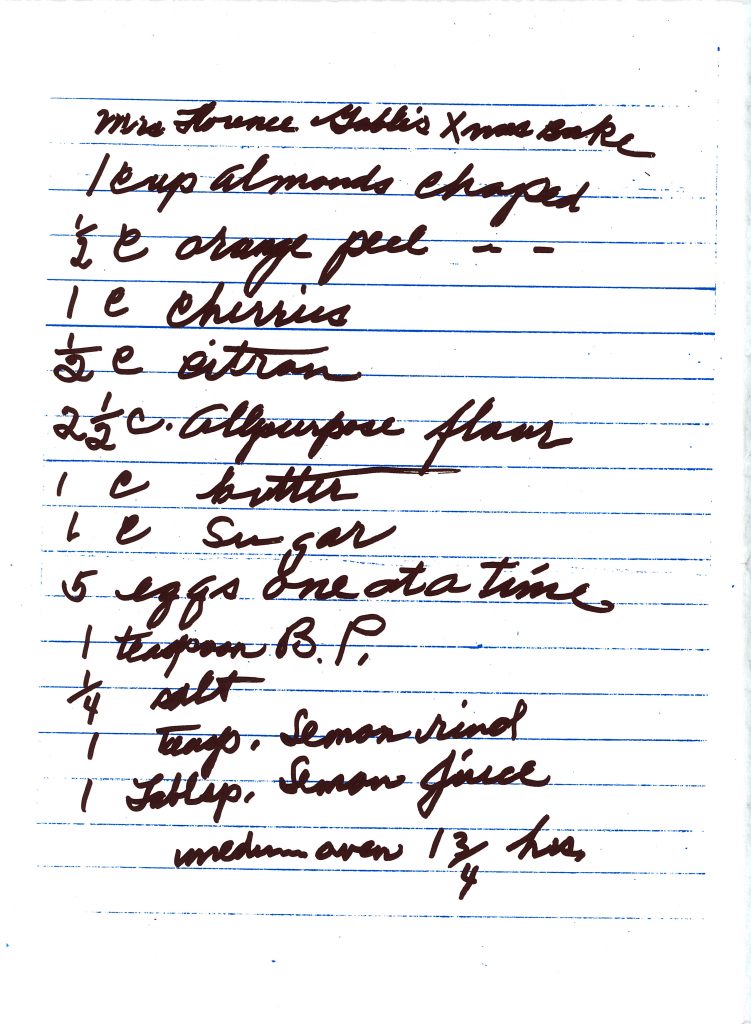 Mrs Florence Gable's Xmas Bake
1 cup almonds chaped
1/2 C orange peel - -
1 C cherries
1/2 C citron
2 1/2 C. Allpurpose flour
1 C butter
1 C Sugar
5 eggs one at a time
1 teaspoon B.P.
1/4 salt
1 teasp. Lemon rind
1 Tablsp. Lemon juice
medium oven 1 3/4 hrs.